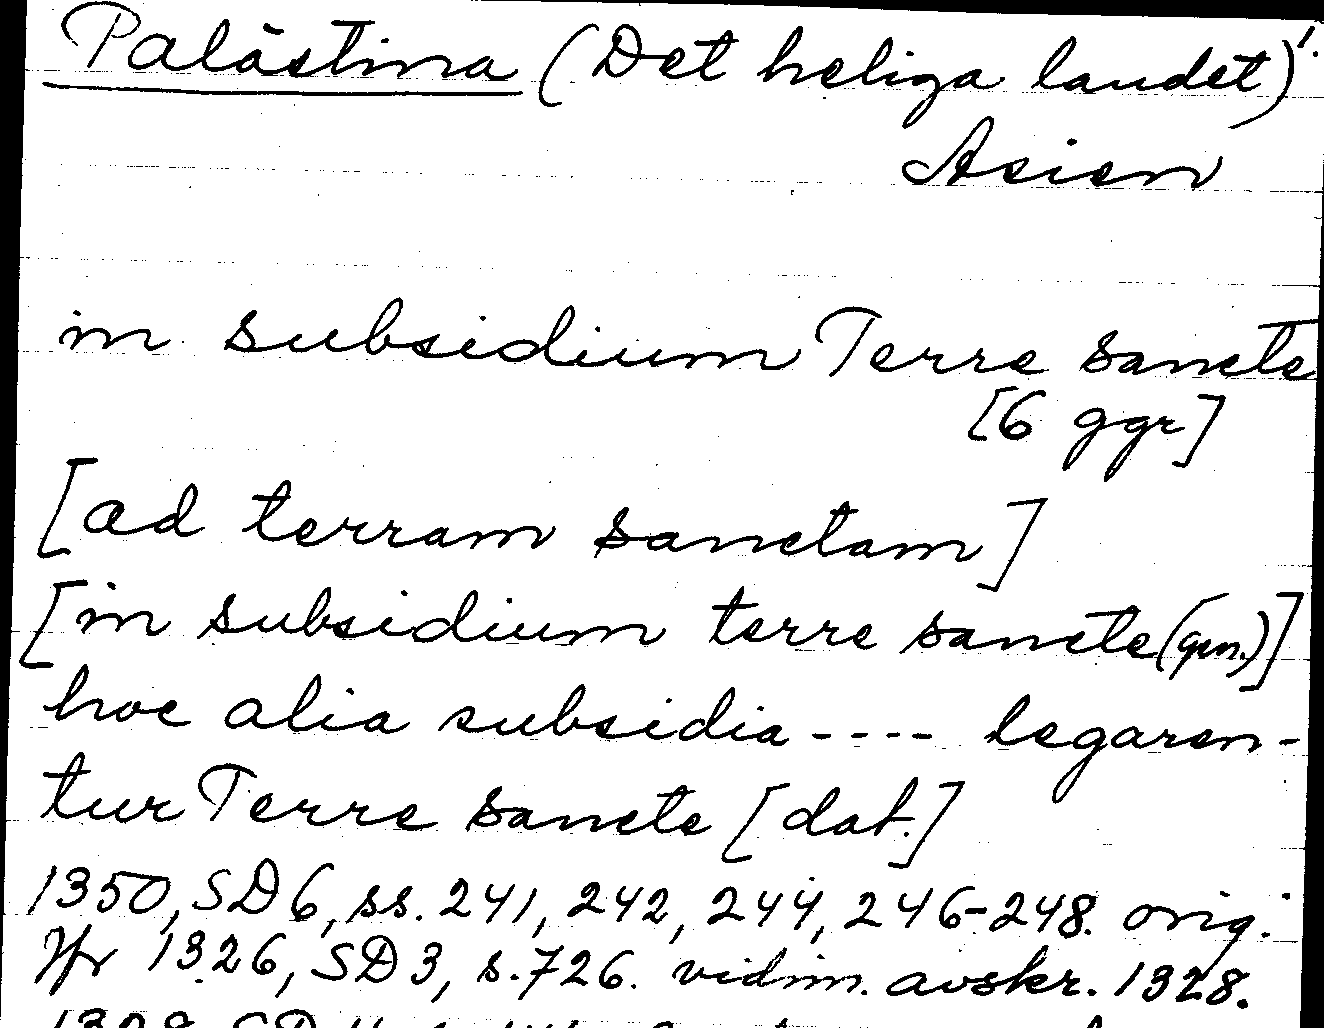 Palästina (Det heliga landet) 1.
Asien
in subsidium Terre sancte
[6 ggr]
[ad terram sanctam]
[in subsidium terre sancte (gen.)]
hoc alia subsidia ---- legaren-
tur Terre sancte [dat.]
1350, SD 6, ss. 241, 242, 244, 246-248. orig.
Jfr 1326, SD 3, s. 726. vidim. avskr. 1328.